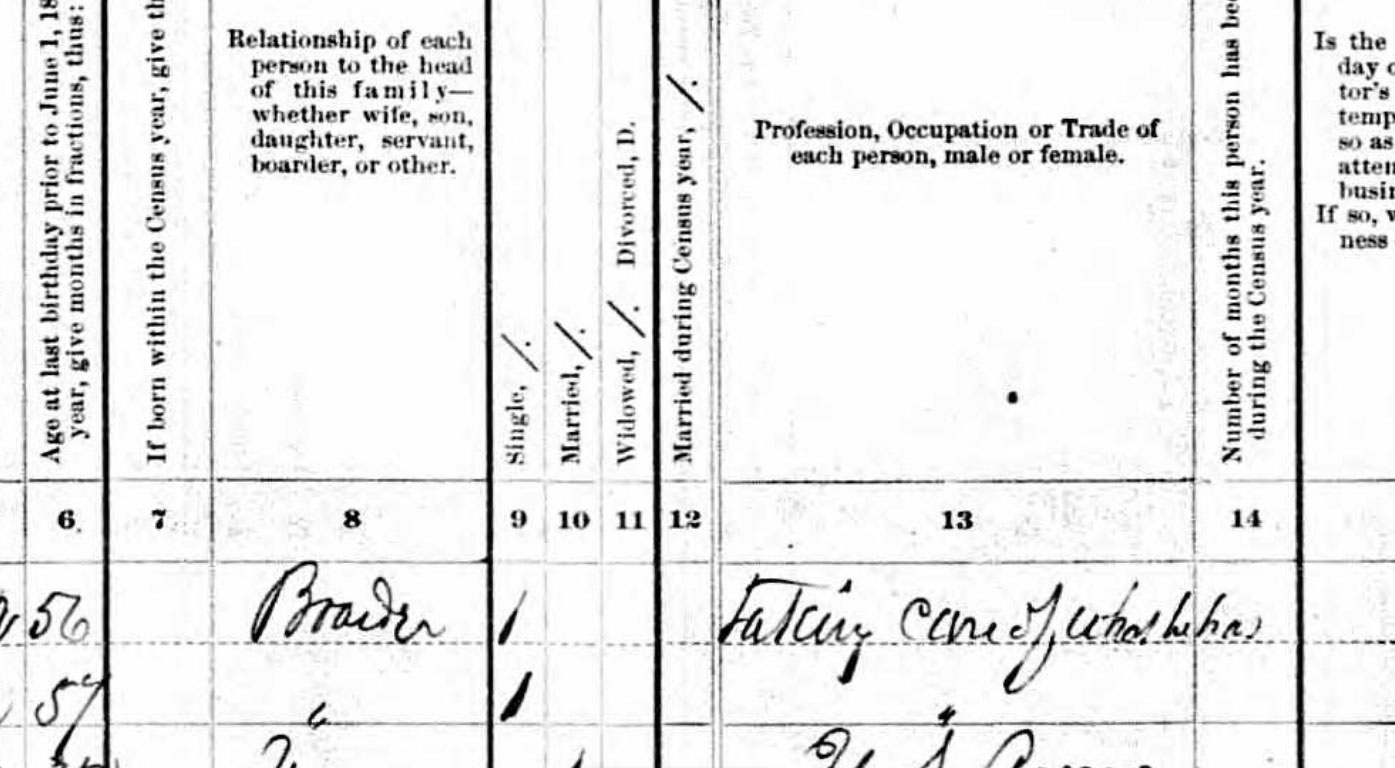 Age at last birthday prior to June 1, 18
year, give months in fractions, thus:
If born within the Census year, give th
Relationship of each
person to the head
of this family—
whether wife, son,
daughter, servant,
boarder, or other.
Single, /.
Married, /.
Widowed, /. Divorced, D.
Married during Census year, /.
Profession, Occupation or Trade of
each person, male or female.
Number of months this person has bee
during the Census year.
Is the
day o
tor's
temp
so as
atten
busin
If so, w
ness
6 7 8 9 10 11 12 13 14
56 Boarder / Taking care of what he has
57 " / "
U. S.